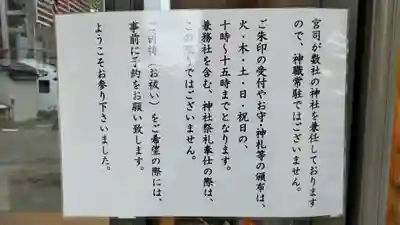 宮司が数社の神社を兼任しております
ので、神職常駐ではございません。
ご朱印の受付やお守・神札等の頒布は、
火・木・土・日・祝日の、
十時～十五時までとなります。
兼務社を含む、神社祭礼奉仕の際は、
この限りではございません。
ご祈祷（お祓い）をご希望の際には、
事前にご予約をお願い致します。
ようこそお参り下さいました。